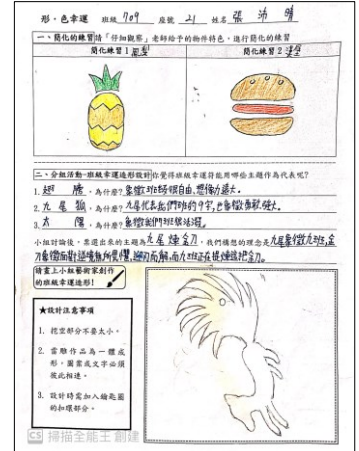 形・色幸運 班級 709 座號 21 姓名 張沛晴
一、簡化的練習 請「仔細觀察」老師給予的物件特色,進行簡化的練習
簡化練習1 鳳梨
簡化練習2 漢堡
二、分組活動-班級幸運造形設計 你覺得班級幸運符能用哪些主題作為代表呢?
1. 翅膀,為什麼? 象徵班級很自由、想像力強大。
2. 九尾狐,為什麼? 九尾代表我們班的9字,也象徵著強大。
3. 太陽,為什麼? 象徵我們班很活潑。
小組討論後,票選出來的主題為九尾煉金刀,我們構想的理念是九尾象徵九班,金
刀象徵面對逆境無所畏懼、迎刃而解,而九班正在提煉這把金刀。
請畫上小組藝術家創作
的班級幸運造形!
★設計注意事項
1. 挖空部分不要太小。
2. 雷雕作品為一體成
形,圖案或文字必須
彼此相連。
3. 設計時需加入鑰匙圈
的扣環部分。
CS 掃描全能王 創建